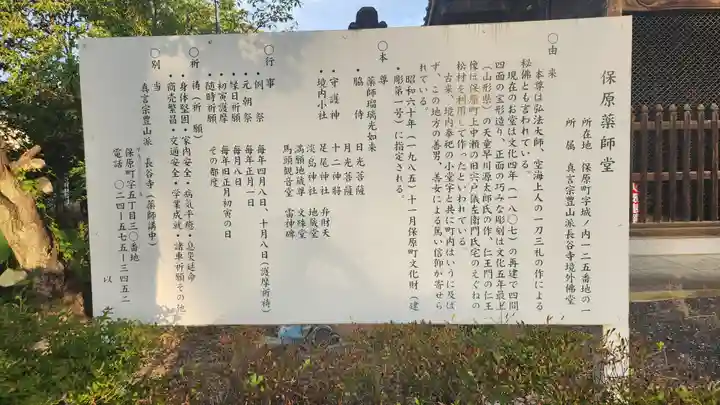 保原薬師堂
所在地 保原町字城ノ内一二五番地の一
所属 真言宗豊山派長谷寺境外佛堂
〇由来
本尊は弘法大師、空海上人の一刀三札の作による
秘佛とも言われている。
現在のお堂は文化四年(一八〇七)の再建で四間
四面の宝形造り、正面の巧みな彫刻は文化五年最上
(山形県)の天童早川源太郎氏の作、仁王門の仁王
像は保原町上中瀬の旧宍戸儀左衛門氏宅のえぐねの
松材を利用して作ったといわれている。
古来、境内奉祀の小堂宇と共に町内はいうに及ば
ず、この地方の善男、善女による篤い信仰が寄せら
れている。
昭和六十年(一九八五)十一月保原町文化財(建
・彫第一号)に指定される。
〇本尊
薬師瑠璃光如来
・脇侍 日光菩薩
月光菩薩
・守護神 十二神将
・境内小社 足尾神社 弁財天
淡島神社 地蔵堂
満願地蔵尊 文殊堂
馬頭観音堂 雷神碑
〇行事
・例祭 毎年四月八日、十月八日(護摩祈祷)
・元朝祭 毎年正月一日
・縁日祈願 毎月八日
・初寅護摩 毎年旧正月初寅の日
・随時祈願 その都度
〇祈祷(祈願)
・身体堅固・家内安全・病気平癒・息災延命
・商売繁昌・交通安全・学業成就・諸車祈願その他
〇別当
真言宗豊山派 長谷寺(薬師講中)
保原町字五丁目三〇番地
電話 〇二四-五七五-三四五二
以